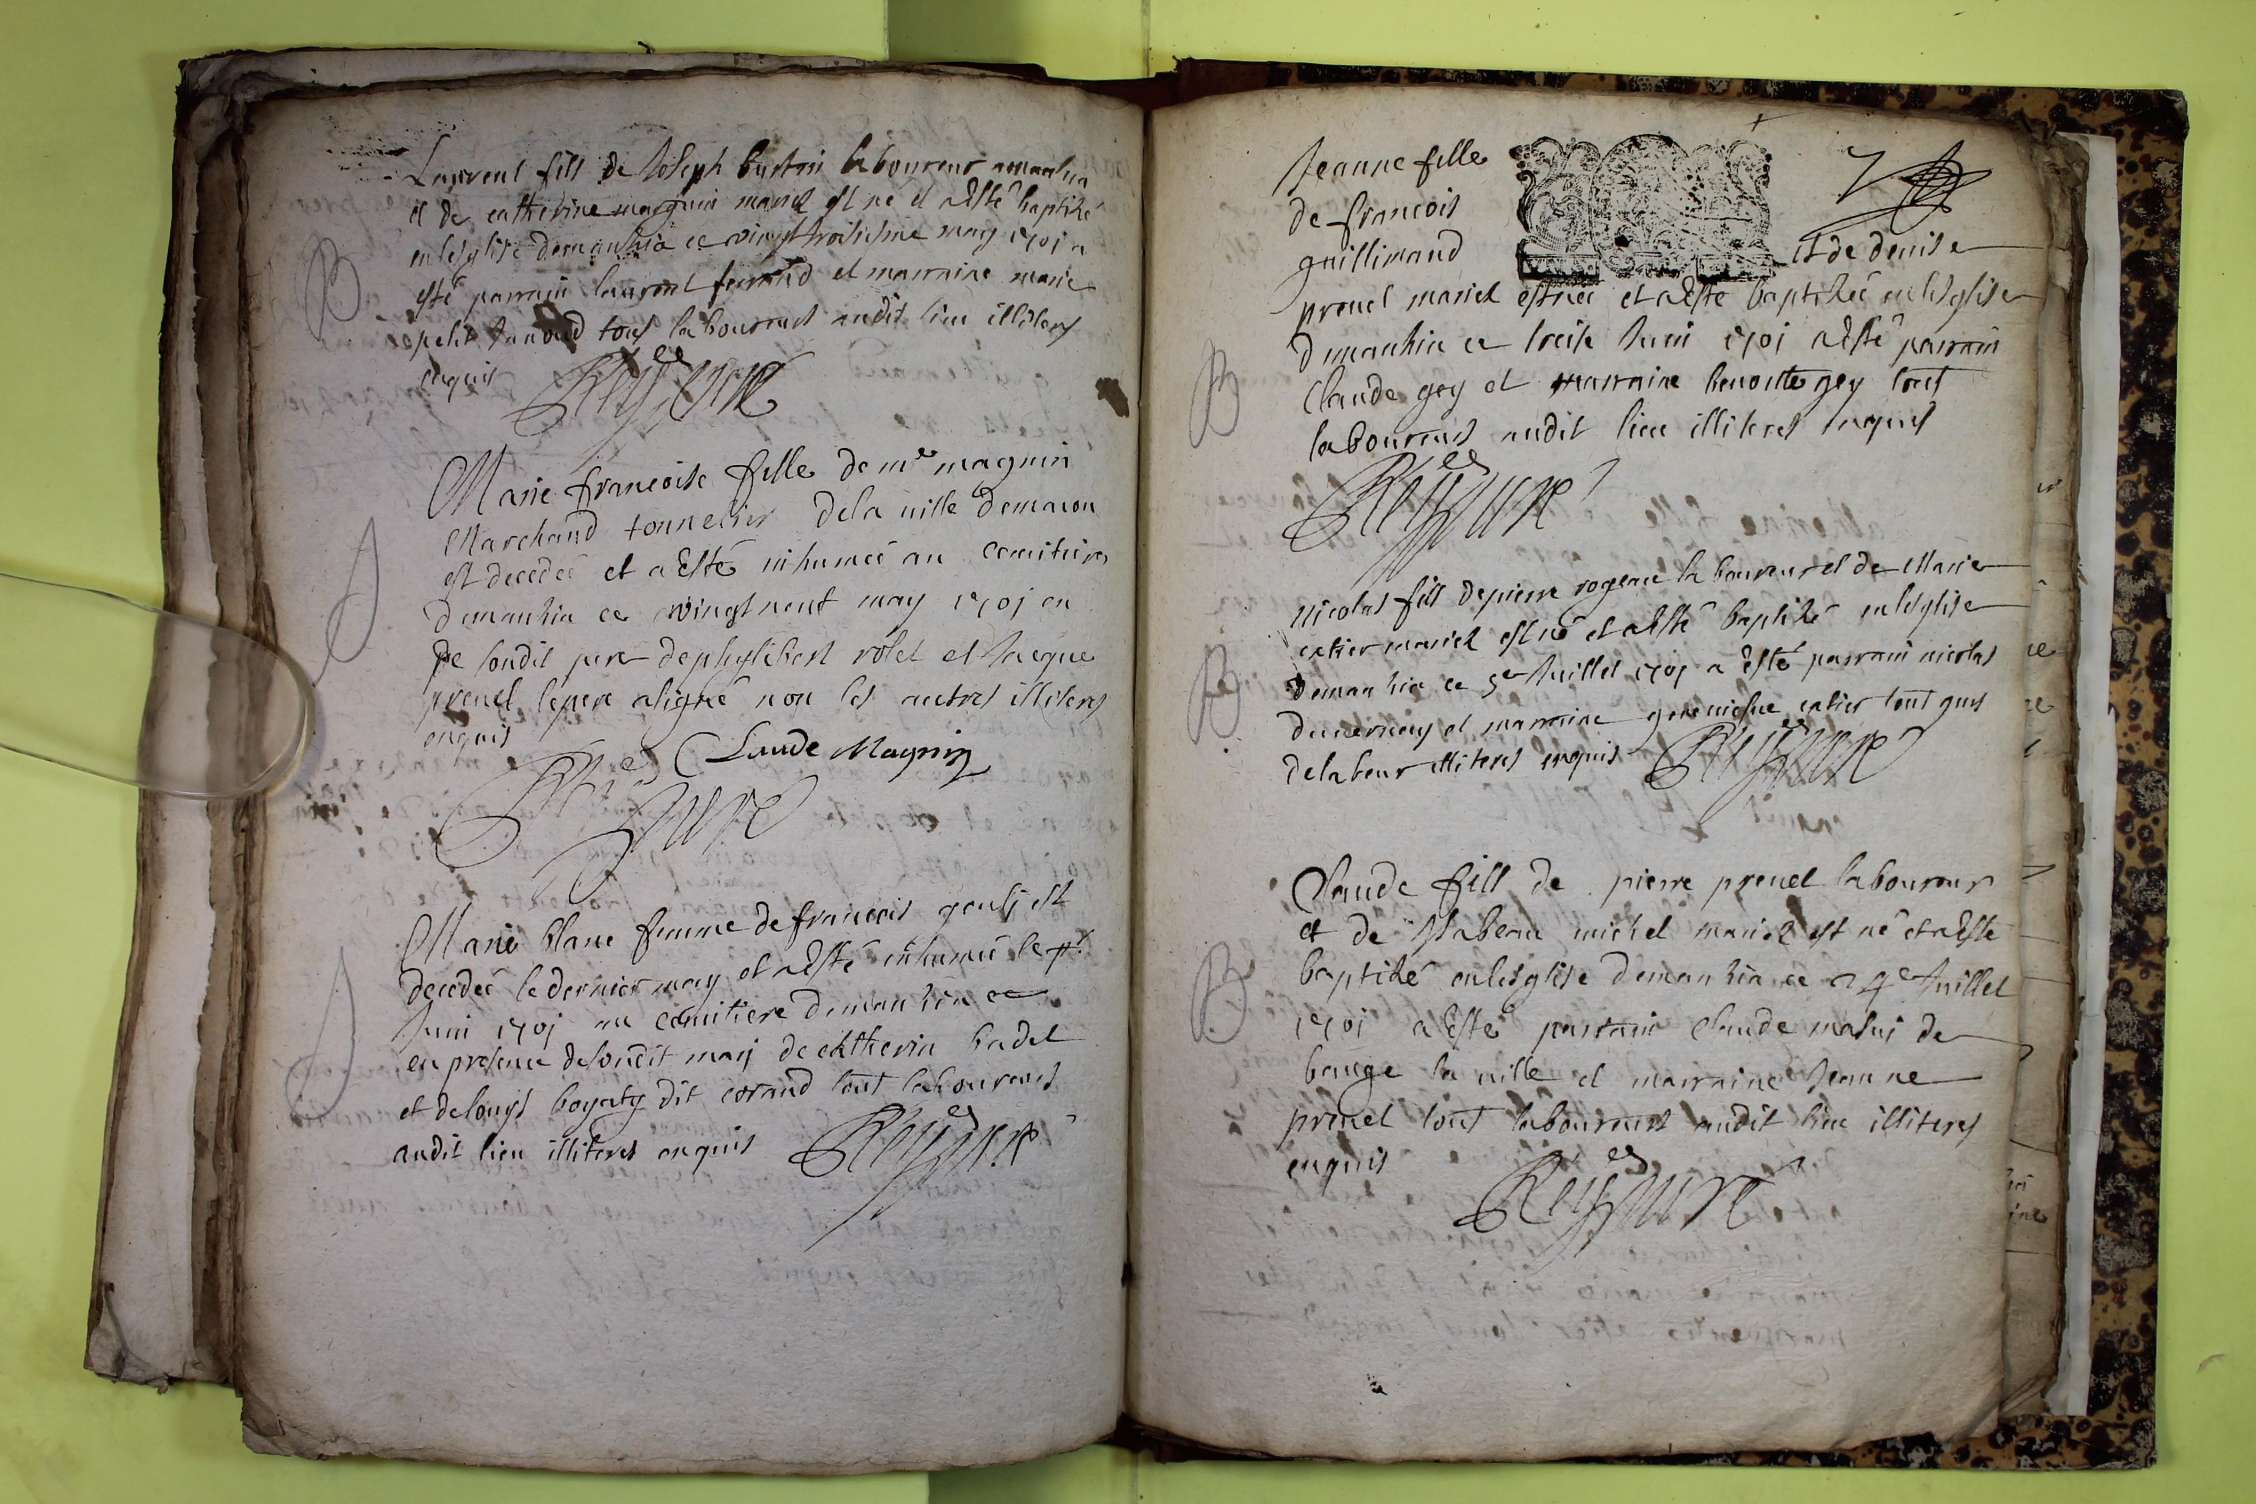 Laurent fils de Joseph burtin laboureur amanhia
et de catherine magnin mariez est né et a esté baptizé
en lesglise demanhia ce vingt troisiesme may 1701 a
esté parrain laurent ferrand et marraine marie
petit Janoud tous laboureurs audit lieu illiteres
enquis
B
Rey Curé
Marie francoise fille de me magnin
Marchand tonnelier dela ville demacon
est decedeé et a esté inhumeé au cemitiere
demanhia ce vingt neuf may 1701 en
pe soudit pere dephylibert rolet et Jacque
prevel lepere a signé non les autres illiteres
enquis
Claude Magnin
Rey Curé
Marie blanc femme de francois gouly est
decedeé le dernier may et a esté inhumeé le pr
Juin 1701 au cemitiere demanhia ce
en presence desoudit mary de catherin badel
et delouys boyaty dit corand tout laboureurs
audit lieu illiteres enquis
Rey Curé
7
Jeanne fille
de francois
guillimaud et de denise
prevel mariez est neé et a esté baptizeé en lesglise
demanhia ce treise Juin 1701 a esté parrain
Claude gey et marraine benoite gey tout
laboureurs audit lieu illiteres enquis
B
Rey Curé
nicolas fils depierre rogeau laboureur et de Marie
catier mariez est né et a esté baptizé en lesglise
demanhia ce 5e Juillet 1701 a esté parrain nicolas
duvernay et marraine catier tout gens
delabeur illiteres enquis
B
Rey Curé
Claude fils de pierre prevel laboureur
et de Isabeau michel mariez est né et a esté
baptizé en lesglise demanhia ce 24e Juillet
1701 a esté parrain Claude maluj de
bauge la ville et marraine Jeanne
prevel tout laboureurs audit lieu illiteres
enquis
B
Rey Curé